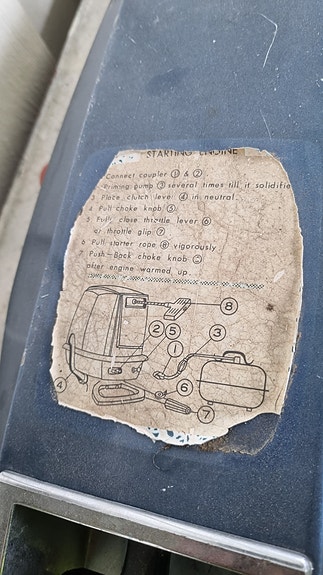 STARTING ENGINE
Connect coupler ① & ②
Priming pump ③ several times till it solidifie
3 Place clutch lever ④ in neutral
4 Pull choke knob ⑤
5 Full, close throttle lever ⑥
or throttle glip ⑦
6 Pull starter rope ⑧ vigorously
7 Push-Back choke knob
after engine warmed up
8
2 5 3
1
4 6
7